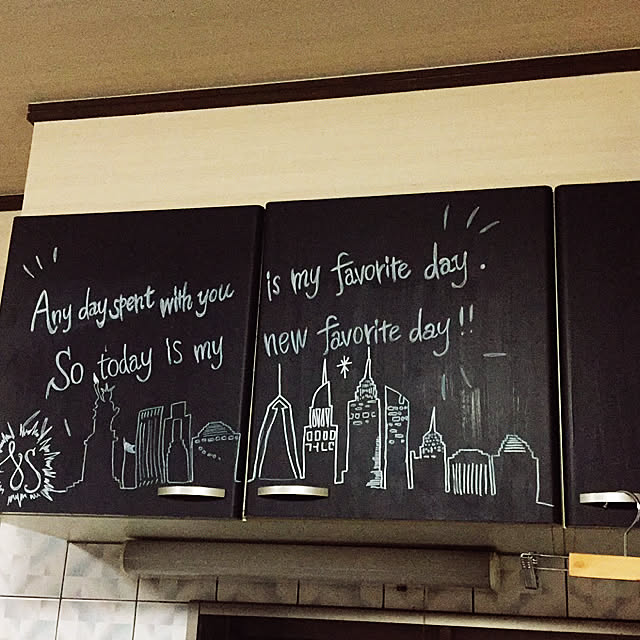 Any day spent with you is my favorite day.
So today is my new favorite day!!
&S